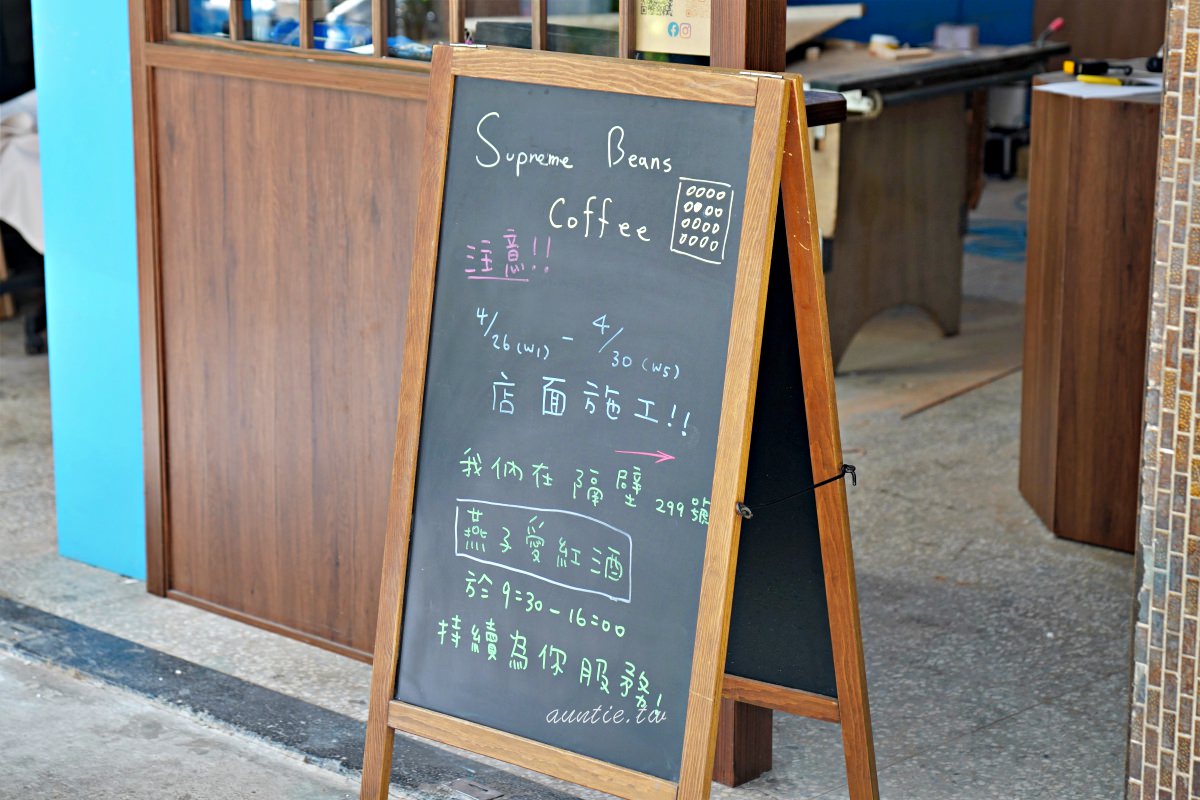 Supreme Beans
Coffee
注意!!
4/26 (W1) - 4/30 (W5)
店面施工!!
我倆在隔壁 299號
燕子愛紅酒
於 9:30 - 16:00
持續為你服務!
auntie.tw